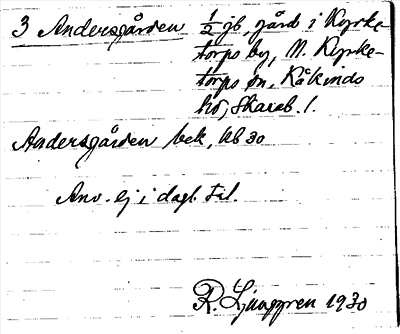 3 Andersgården ½ gb, gård i Kyrke-
torps by, N. Kyrke-
torps sn, Kåkinds
hd, Skarab. l.
Andersgården bek, Ub 30
Anv. ej i dagl. tal.
R. Ljunggren 1930